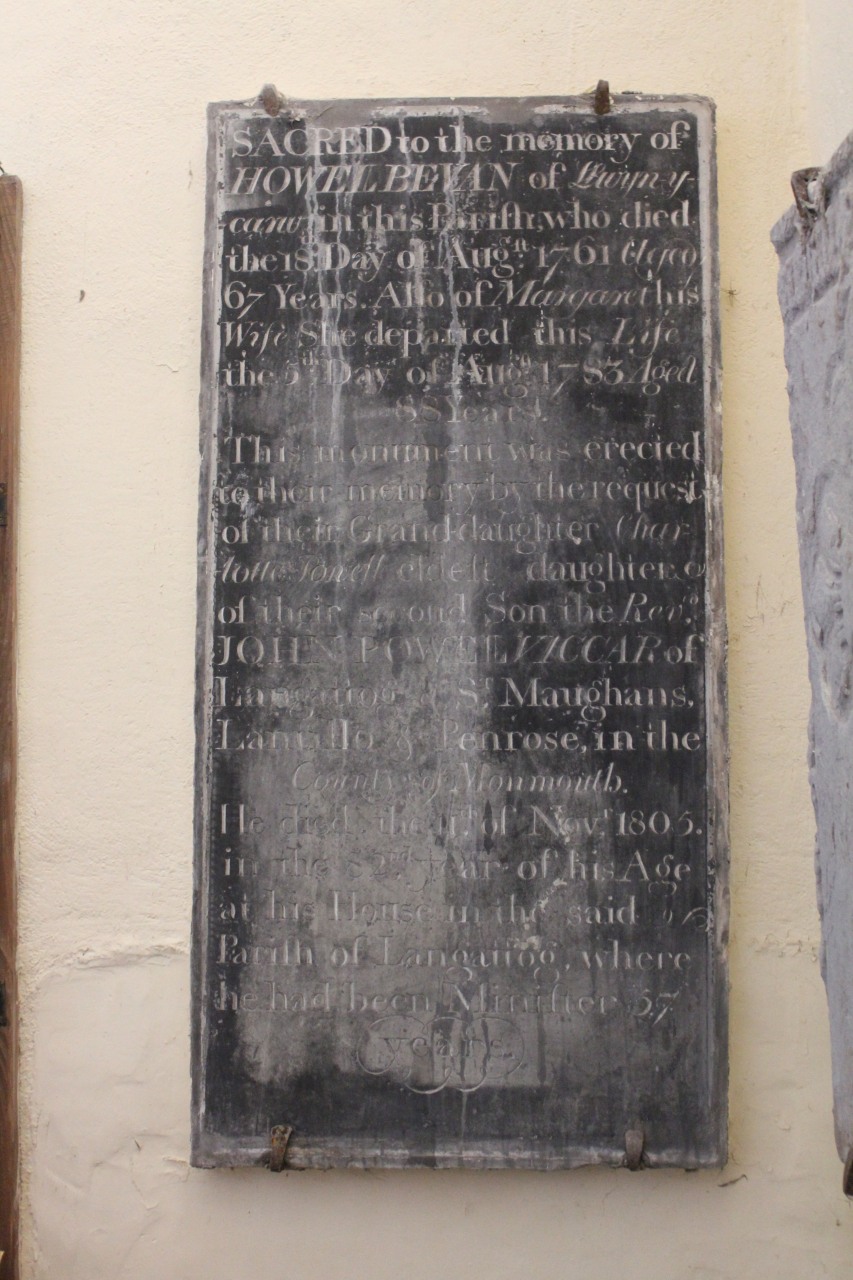 SACRED to the memory of
HOWEL BEVAN of Llwyn-y-
canw in this Parish, who died
the 18 Day of Augst. 1761 Aged
67 Years. Also of Margaret his
Wife She departed this Life
the 5th Day of Augst. 1783 Aged
88 Years.
This monument was erected
to their memory by the request
of their Grand-daughter Char-
lotte Powell eldest daughter o
of their second Son the Revd.
JOHN POWEL VICCAR of
Langattog & St. Maughans,
Lantillo & Penrose, in the
County of Monmouth.
He died the of Novr. 1805.
in the 82nd year of his Age
at his House in the said
Parish of Langattog, where
he had been Minister 57
years.